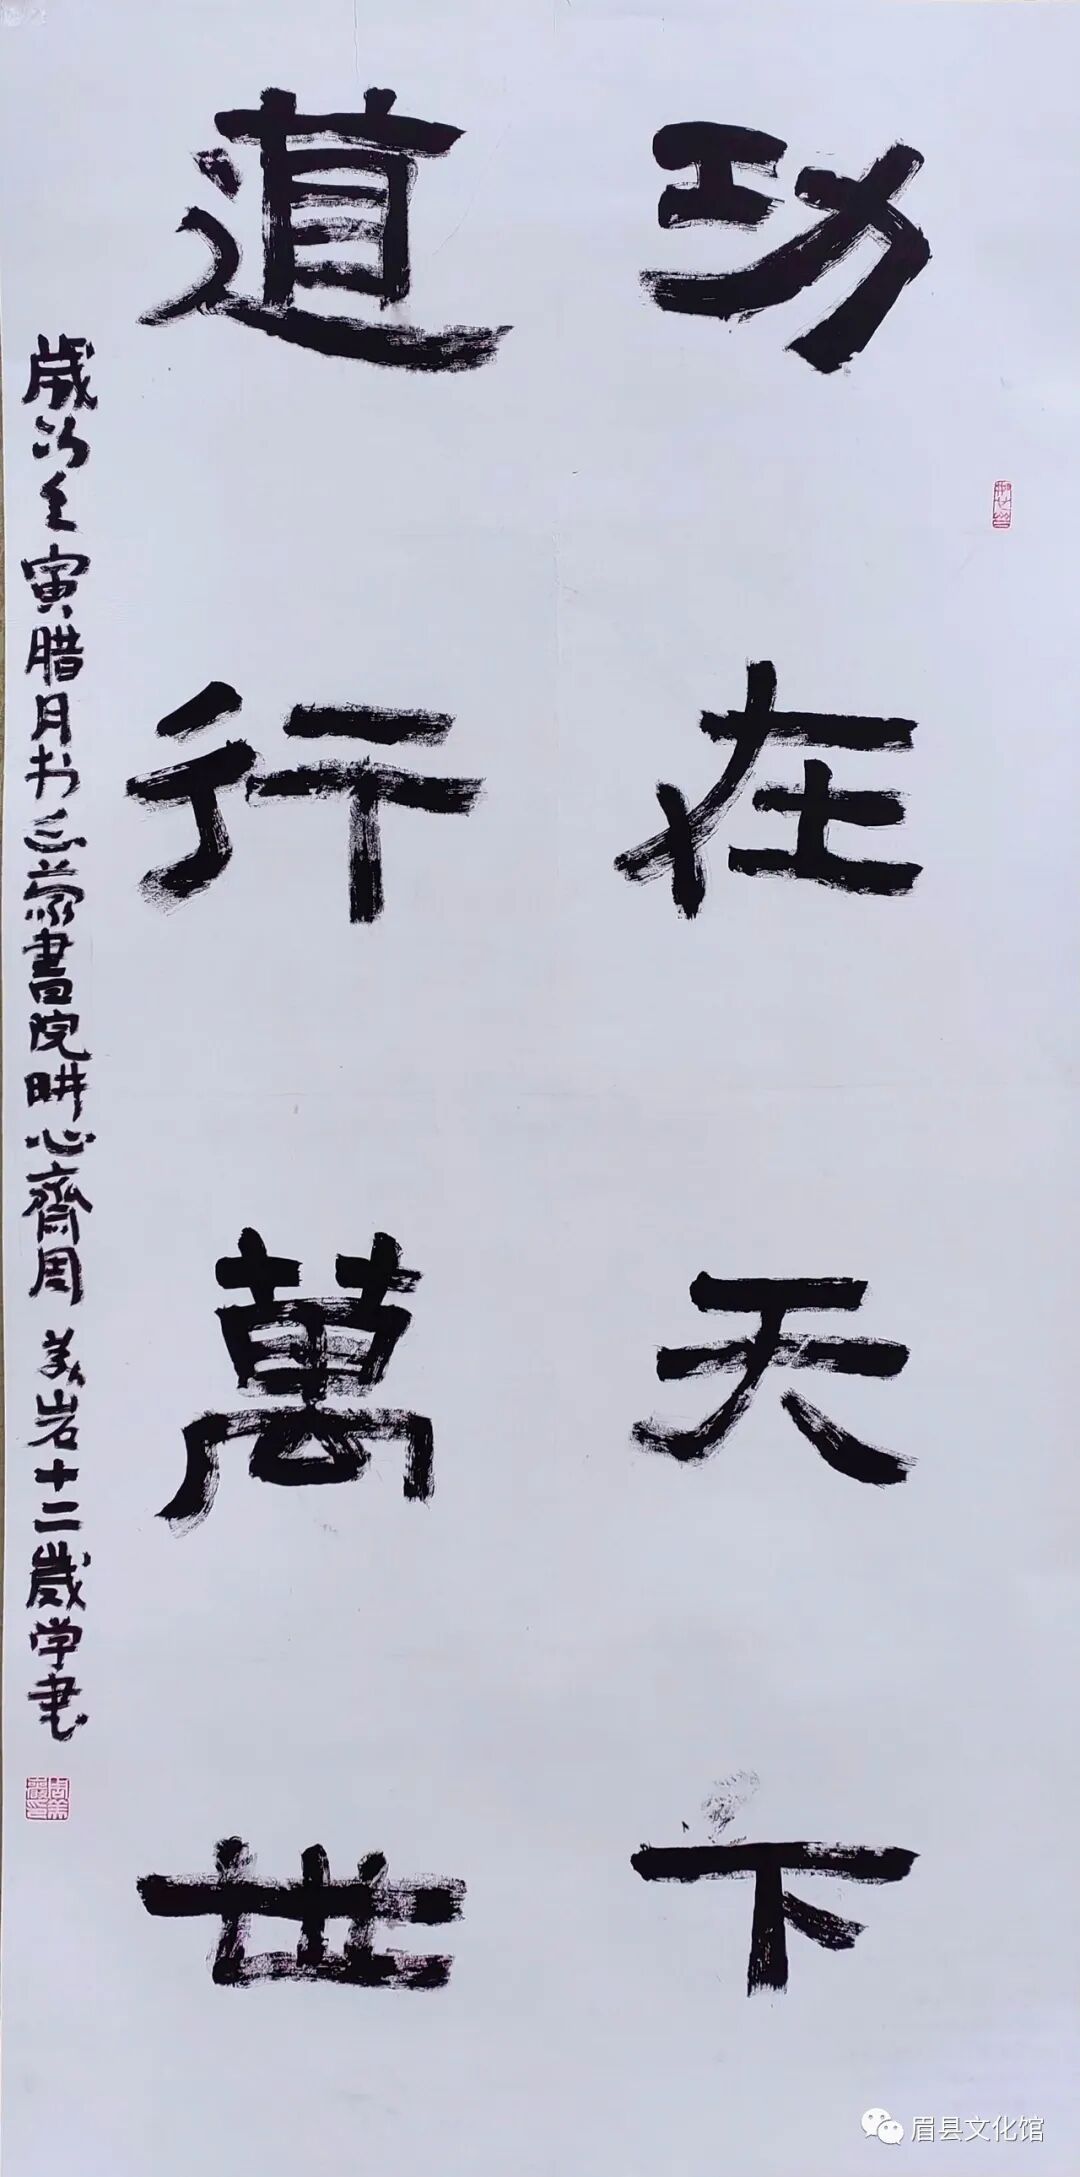 功在天下
道行萬世
歲次壬寅腊月书正蒙書院畊心齊周美岩十二歲学書
眉县文化馆